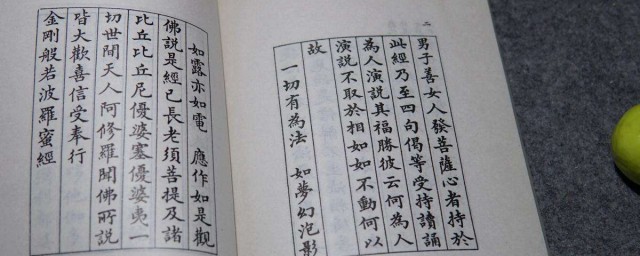 二
男子善女人發菩薩心者持於
此經乃至四句偈等受持讀誦
為人演說其福勝彼云何為人
演說不取於相如如不動何以
故
一切有為法 如夢幻泡影
如露亦如電 應作如是觀
佛說是經已長老須菩提及諸
比丘比丘尼優婆塞優婆夷一
切世間天人阿修羅聞佛所說
皆大歡喜信受奉行
金剛般若波羅蜜經